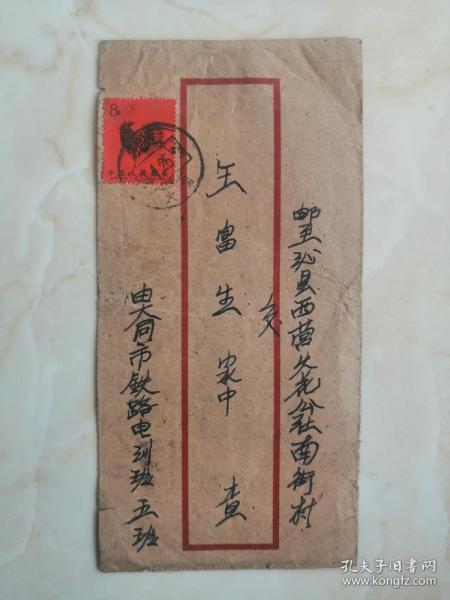 邮至沁县西营公社南街村
交
王富生家中 查
由大同市铁路电训班五班
8分
中国人民邮政
孔夫子旧书网
www.kongfz.com